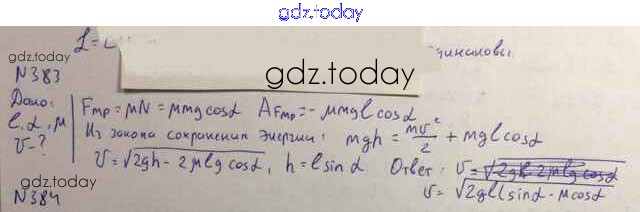 gdz.today
gdz.today
динаковы.
gdz.today
N383
Дано: Fтр = μN = μmg cosα AFтр = - μmgl cosα
l, α, μ Из закона сохранения энергии: mgh = mv²/2 + mgl cosα
v - ? v = √2gh - 2μlg cosα, h = l sinα Ответ: v = √2gh - 2μlg cosα
v = √2gl(sinα - μcosα
N384
gdz.today